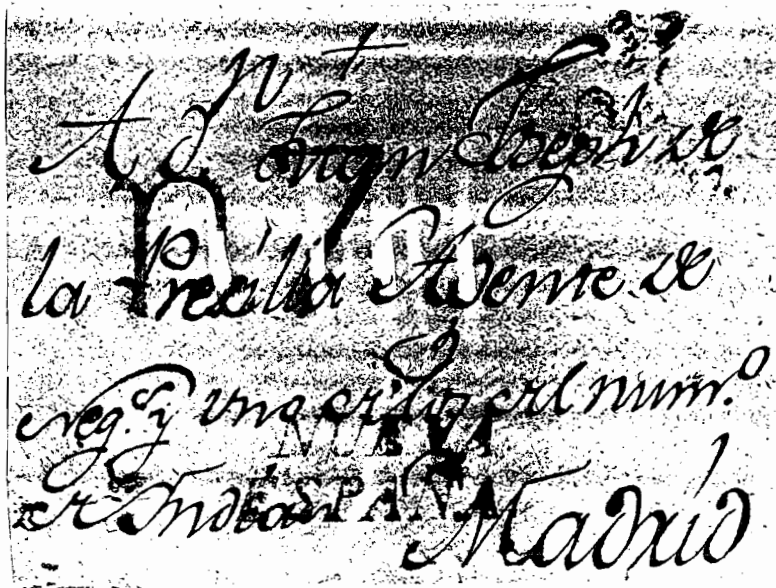 A Dn. Juan Joseph de
la Precilla Agente de
Neg.s y uno de los del num.o
de Indias
NUEVA
ESPAÑA
Madrid